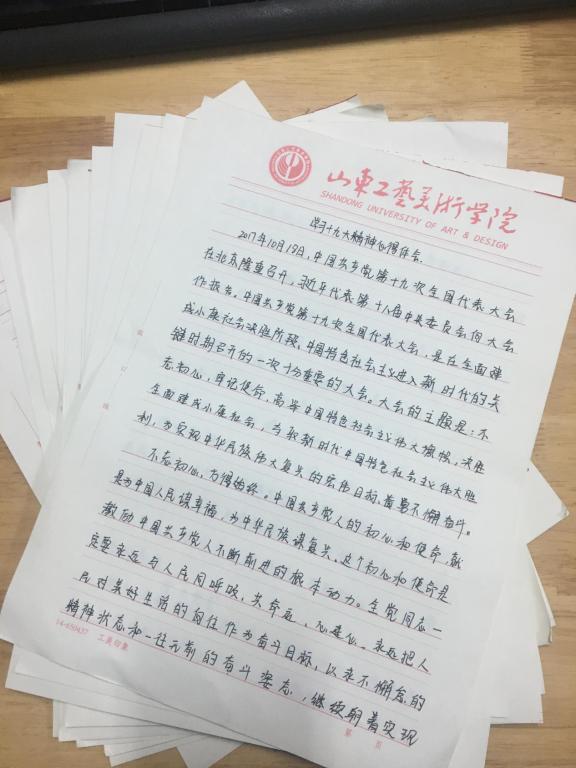 山東工藝美術學院
SHANDONG UNIVERSITY OF ART & DESIGN
学习十九大精神心得体会
2017年10月18日,中国共产党第十九次全国代表大会
在北京隆重召开,习近平代表第十八届中央委员会向大会
作报告。中国共产党第十九次全国代表大会,是在全面建
成小康社会决胜阶段、中国特色社会主义进入新时代的关
键时期召开的一次十分重要的大会。大会的主题是:不
忘初心,牢记使命,高举中国特色社会主义伟大旗帜,决胜
全面建成小康社会,夺取新时代中国特色社会主义伟大胜
利,为实现中华民族伟大复兴的宏伟目标,着墨不懈奋斗。
不忘初心,方得始终。中国共产党人的初心和使命,就
是为中国人民谋幸福,为中华民族谋复兴。这个初心和使命是
激励中国共产党人不断前进的根本动力。全党同志一
定要永远与人民同呼吸、共命运、心连心,永远把人
民对美好生活的向往作为奋斗目标,以永不懈怠的
精神状态和一往无前的奋斗姿态,继续朝着实现
14-659437 工美印象
第 页